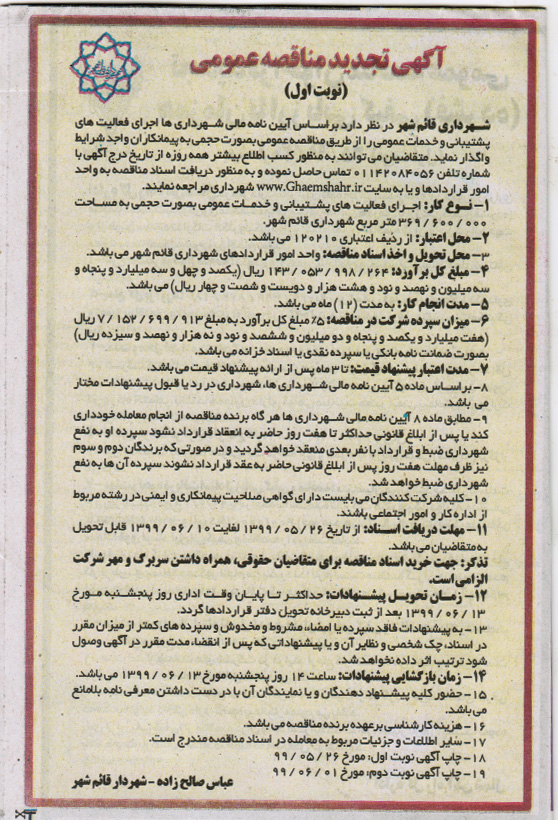 آگهی تجدید مناقصه عمومی
(نوبت اول)
شهرداری قائم شهر در نظر دارد براساس آیین نامه مالی شهرداری ها اجرای فعالیت های
پشتیبانی و خدمات عمومی را از طریق مناقصه عمومی بصورت حجمی به پیمانکاران واجد شرایط
واگذار نماید. متقاضیان می توانند به منظور کسب اطلاع بیشتر همه روزه از تاریخ درج آگهی با
شماره تلفن ۰۱۱۴۲۰۸۴۰۵۶ تماس حاصل نموده و به منظور دریافت اسناد مناقصه به واحد
امور قراردادها و یا به سایت www.Ghaemshahr.ir شهرداری مراجعه نمایند.
۱- نوع کار: اجرای فعالیت های پشتیبانی و خدمات عمومی بصورت حجمی به مساحت
۳۶۹/۶۰۰/۰۰۰ متر مربع شهرداری قائم شهر.
۲- محل اعتبار: از ردیف اعتباری ۱۲۰۲۱۰ می باشد.
۳- محل تحویل و اخذ اسناد مناقصه: واحد امور قراردادهای شهرداری قائم شهر می باشد.
۴- مبلغ کل برآورد: ۱۴۳/۰۵۳/۹۹۸/۲۶۴ ریال (یکصد و چهل و سه میلیارد و پنجاه و
سه میلیون و نهصد و نود و هشت هزار و دویست و شصت و چهار ریال) می باشد.
۵- مدت انجام کار: به مدت (۱۲) ماه می باشد.
۶- میزان سپرده شرکت در مناقصه: ۵٪ مبلغ کل برآورد به مبلغ ۷/۱۵۲/۶۹۹/۹۱۳ ریال
(هفت میلیارد و یکصد و پنجاه و دو میلیون و ششصد و نود و نه هزار و نهصد و سیزده ریال)
بصورت ضمانت نامه بانکی یا سپرده نقدی یا اسناد خزانه می باشد.
۷- مدت اعتبار پیشنهاد قیمت: تا ۳ ماه پس از ارائه پیشنهاد قیمت می باشد.
۸- براساس ماده ۵ آیین نامه مالی شهرداری ها، شهرداری در رد یا قبول پیشنهادات مختار
می باشد.
۹- مطابق ماده ۸ آیین نامه مالی شهرداری ها هر گاه برنده مناقصه از انجام معامله خودداری
کند یا پس از ابلاغ قانونی حداکثر تا هفت روز حاضر به انعقاد قرارداد نشود سپرده او به نفع
شهرداری ضبط و قرارداد با نفر بعدی منعقد خواهد گردید و در صورتی که برندگان دوم و سوم
نیز ظرف مهلت هفت روز پس از ابلاغ قانونی حاضر به عقد قرارداد نشوند سپرده آن ها به نفع
شهرداری ضبط خواهد شد.
۱۰- کلیه شرکت کنندگان می بایست دارای گواهی صلاحیت پیمانکاری و ایمنی در رشته مربوط
از اداره کار و امور اجتماعی باشند.
۱۱- مهلت دریافت اسناد: از تاریخ ۱۳۹۹/۰۵/۲۶ لغایت ۱۳۹۹/۰۶/۱۰ قابل تحویل
به متقاضیان می باشد.
تذکر: جهت خرید اسناد مناقصه برای متقاضیان حقوقی، همراه داشتن سربرگ و مهر شرکت
الزامی است.
۱۲- زمان تحویل پیشنهادات: حداکثر تا پایان وقت اداری روز پنجشنبه مورخ
۱۳۹۹/۰۶/۱۳ بعد از ثبت دبیرخانه تحویل دفتر قراردادها گردد.
۱۳- به پیشنهادات فاقد سپرده یا امضاء، مشروط و مخدوش و سپرده های کمتر از میزان مقرر
در اسناد، چک شخصی و نظایر آن و یا پیشنهاداتی که پس از انقضاء، مدت مقرر در آگهی وصول
شود ترتیب اثر داده نخواهد شد.
۱۴- زمان بازگشایی پیشنهادات: ساعت ۱۴ روز پنجشنبه مورخ ۱۳۹۹/۰۶/۱۳ می باشد.
۱۵- حضور کلیه پیشنهاد دهندگان و یا نمایندگان آن با در دست داشتن معرفی نامه بلامانع
می باشد.
۱۶- هزینه کارشناسی بر عهده برنده مناقصه می باشد.
۱۷- سایر اطلاعات و جزئیات مربوط به معامله در اسناد مناقصه مندرج است.
۱۸- چاپ آگهی نوبت اول: مورخ ۹۹/۰۵/۲۶
۱۹- چاپ آگهی نوبت دوم: مورخ ۹۹/۰۶/۰۱
عباس صالح زاده - شهردار قائم شهر